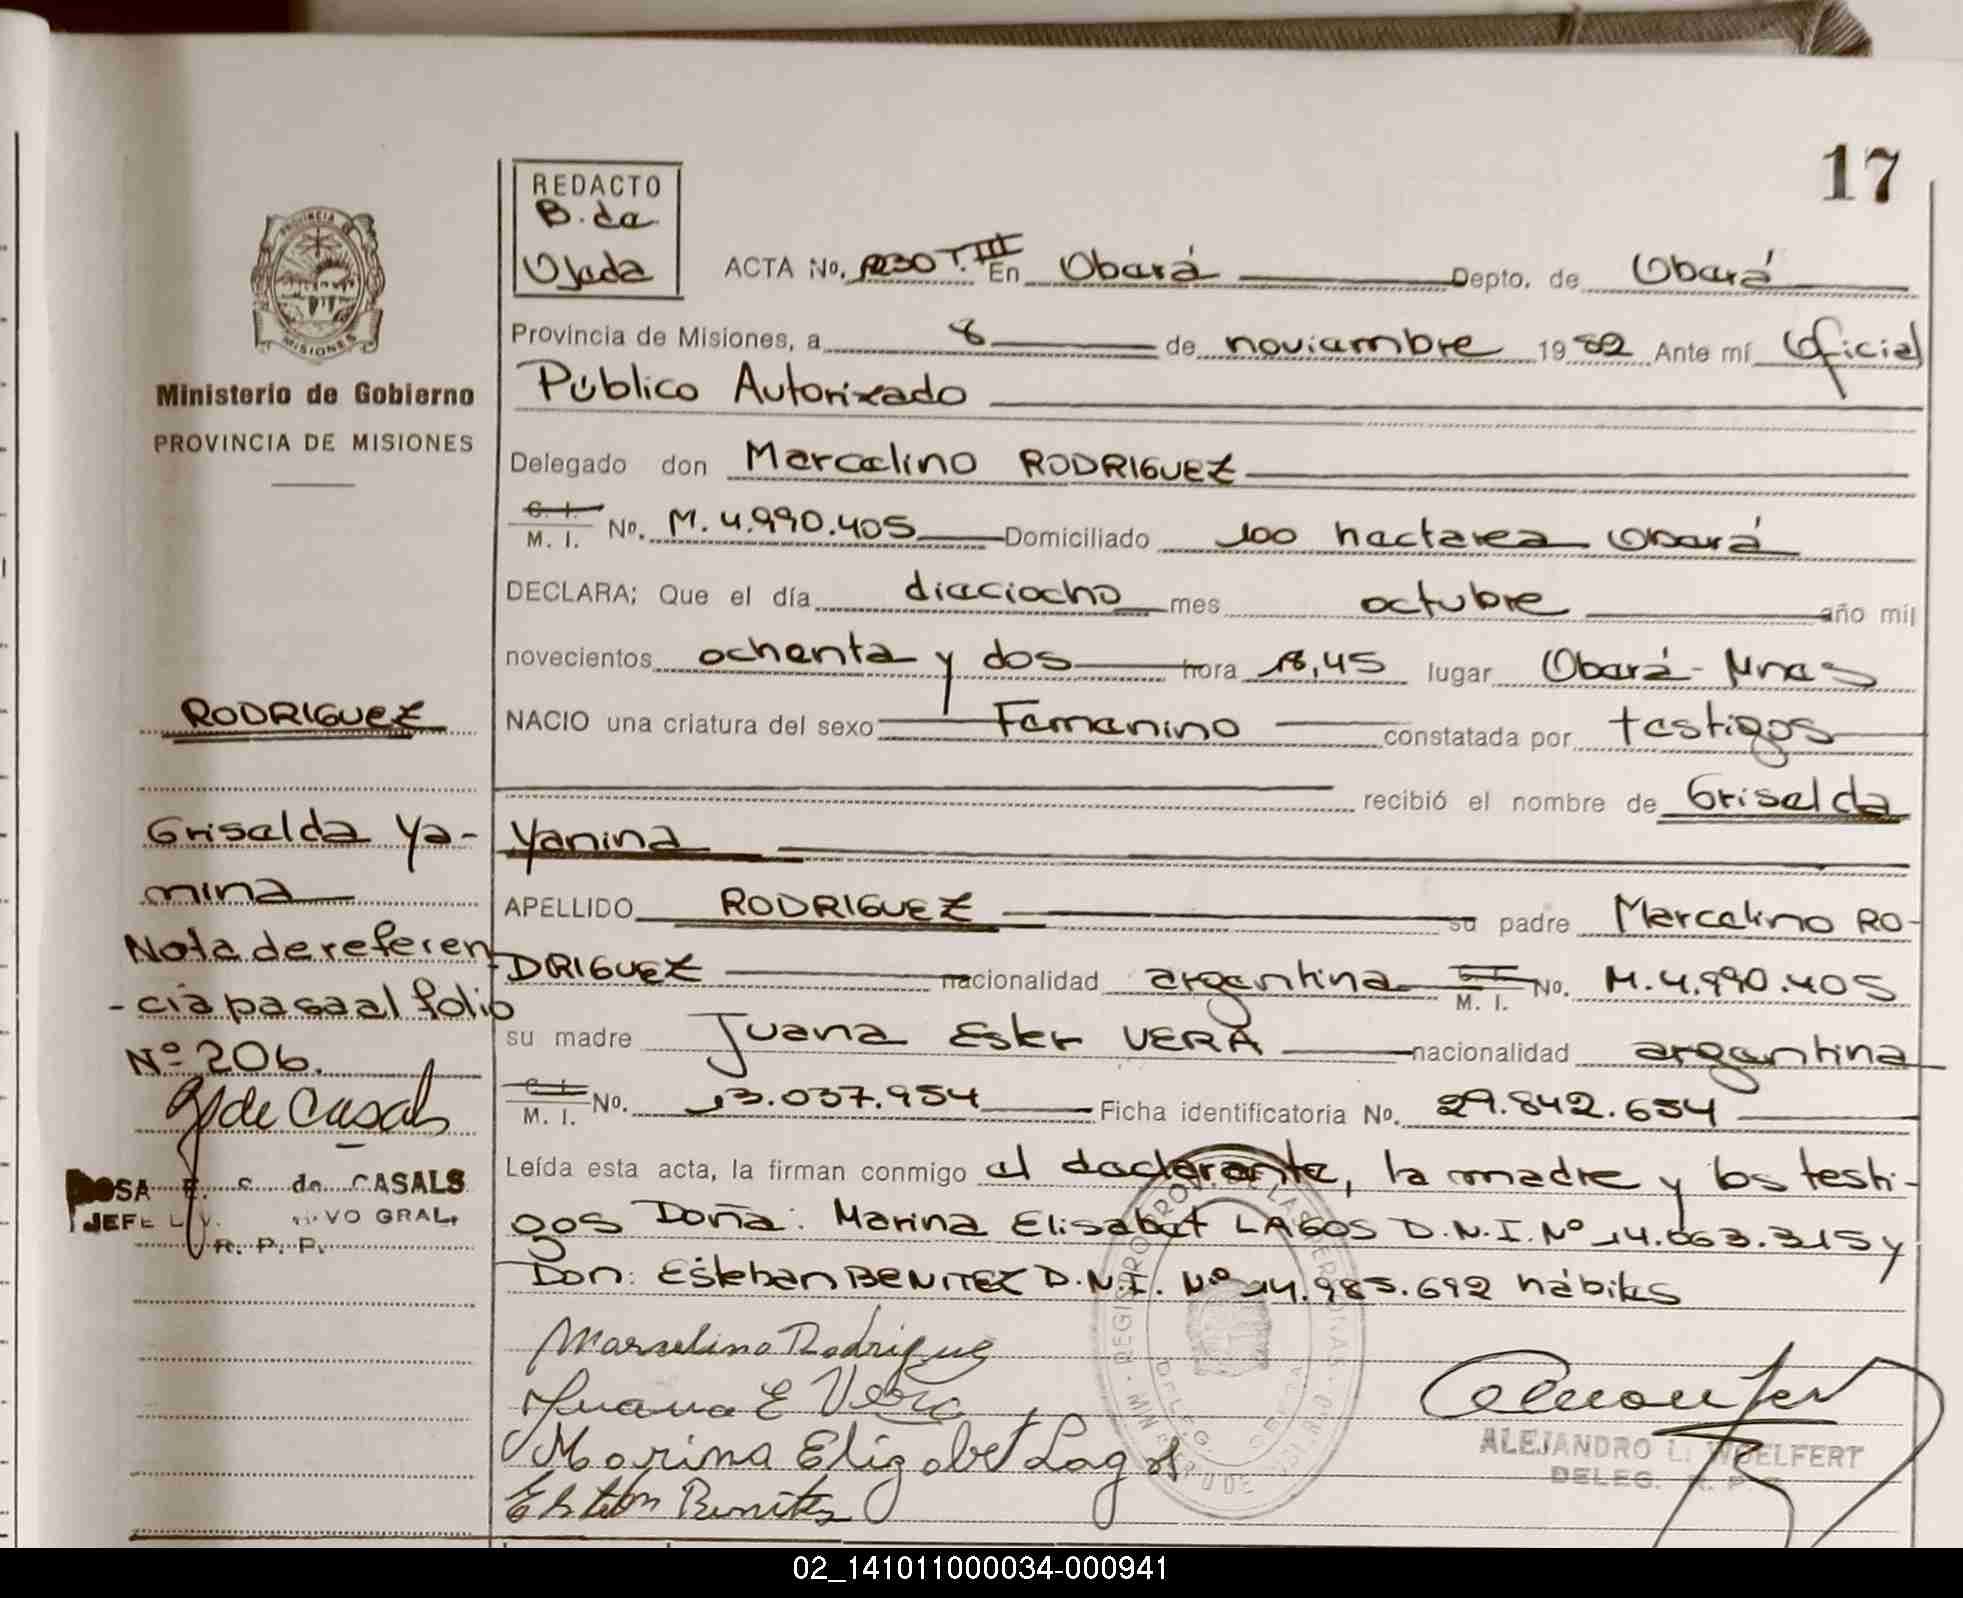 17
REDACTO
B. da
Ojeda
ACTA No. 1230 T. III En Oberá Depto. de Oberá
Provincia de Misiones, a 8 de noviembre 1982 Ante mí Oficial
Público Autorizado
Delegado don Marcelino RODRIGUEZ
C. I.
M. I. No. M. 4.990.405 Domiciliado 100 hectarea Oberá
DECLARA; Que el día dieciocho mes octubre año mil
novecientos ochenta y dos hora 18,45 lugar Oberá - Mnes
NACIO una criatura del sexo Femenino constatada por testigos
recibió el nombre de Griselda
Yanina
APELLIDO RODRIGUEZ su padre Marcelino RO-
DRIGUEZ nacionalidad argentina C. I. M. I. No. M. 4.990.405
su madre Juana Ester VERA nacionalidad argentina
C. I.
M. I. No. 13.037.954 Ficha identificatoria No. 29.842.654
Leída esta acta, la firman conmigo el declarante, la madre y los testi-
gos Doña: Marina Elisabet LAGOS D.N.I. Nº 14.063.315 y
Don: Esteban BENITEZ D.N.I. Nº 14.985.692 hábiles
Marcelino Rodriguez
Juana E Vera
Marina Elizabet Lagos
Esteban Benitez
ALEJANDRO L. WOELFERT
DELEG.
PROVINCIA
MISIONES
Ministerio de Gobierno
PROVINCIA DE MISIONES
RODRIGUEZ
Griselda Ya-
nina
Nota de referen
-cia pasa al folio
Nº 206.
de Casals
ROSA E. S. de CASALS
JEFE VO GRAL.
R. P. P.
02_141011000034-000941